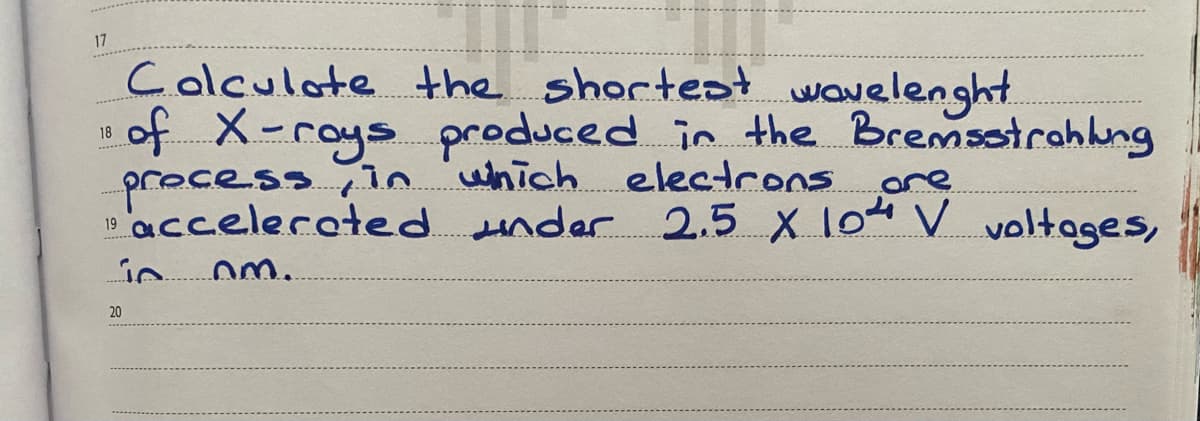 17
Calculate the shortest wavelenght
18 of X-rays produced in the Bremsstrahlung
process, in which electrons are
19 accelerated under 2.5 X 10⁴ V voltages,
in nm.
20